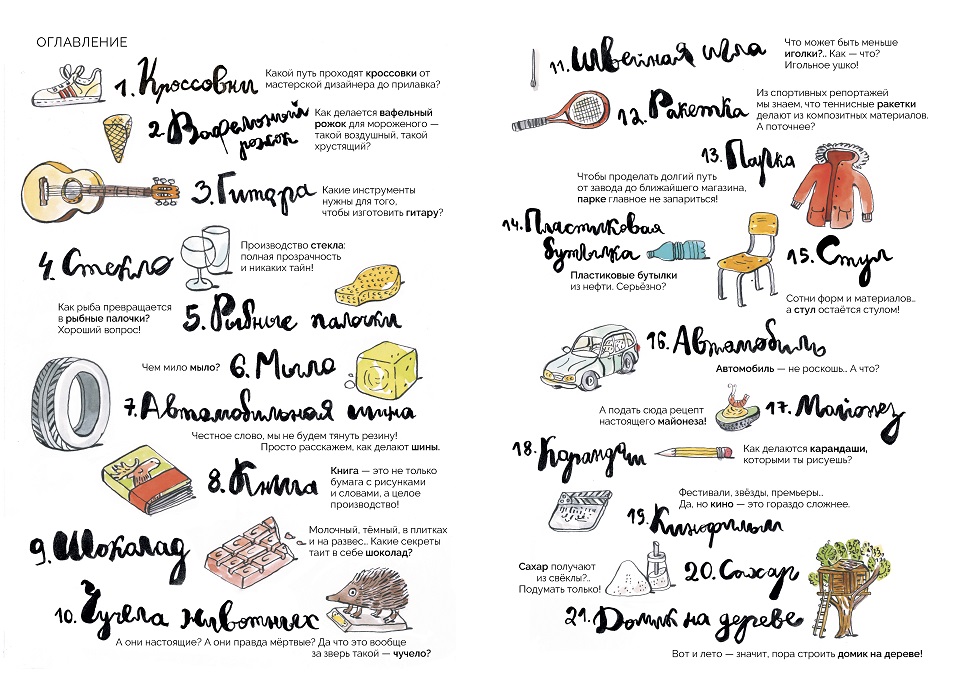 ОГЛАВЛЕНИЕ
1. Кроссовки
Какой путь проходят кроссовки от
мастерской дизайнера до прилавка?
2. Вафельный
рожок
Как делается вафельный
рожок для мороженого —
такой воздушный, такой
хрустящий?
3. Гитара
Какие инструменты
нужны для того,
чтобы изготовить гитару?
4. Стекло
Производство стекла:
полная прозрачность
и никаких тайн!
Как рыба превращается
в рыбные палочки?
Хороший вопрос!
5. Рыбные палочки
Чем мило мыло?
6. Мыло
7. Автомобильная шина
Честное слово, мы не будем тянуть резину!
Просто расскажем, как делают шины.
8. Книга
Книга — это не только
бумага с рисунками
и словами, а целое
производство!
9. Шоколад
Молочный, тёмный, в плитках
и на развес.. Какие секреты
таит в себе шоколад?
10. Чучела животных
А они настоящие? А они правда мёртвые? Да что это вообще
за зверь такой — чучело?
11. Швейная игла
Что может быть меньше
иголки?.. Как — что?
Игольное ушко!
12. Ракетка
Из спортивных репортажей
мы знаем, что теннисные ракетки
делают из композитных материалов.
А поточнее?
13. Парка
Чтобы проделать долгий путь
от завода до ближайшего магазина,
парке главное не запариться!
14. Пластиковая
бутылка
Пластиковые бутылки
из нефти. Серьёзно?
15. Стул
Сотни форм и материалов..
а стул остаётся стулом!
16. Автомобиль
Автомобиль — не роскошь.. А что?
А подать сюда рецепт
настоящего майонеза!
17. Майонез
18. Карандаш
Как делаются карандаши,
которыми ты рисуешь?
Фестивали, звёзды, премьеры..
Да, но кино — это гораздо сложнее.
19. Кинофильм
Сахар получают
из свёклы?..
Подумать только!
20. Сахар
21. Домик на дереве
Вот и лето — значит, пора строить домик на дереве!